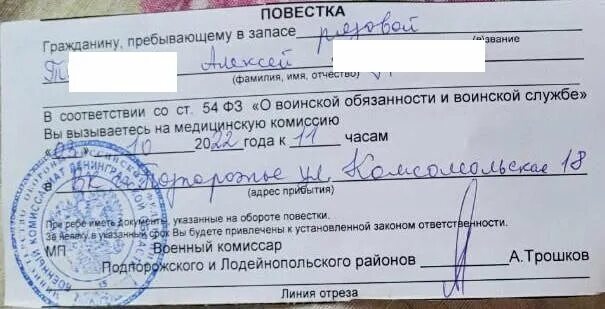 ПОВЕСТКА
Гражданину, пребывающему в запасе рядовой
(в)звание
Т Алексей
(фамилия, имя, отчество)
В соответствии со ст. 54 ФЗ «О воинской обязанности и воинской службе»
Вы вызываетесь на медицинскую комиссию
«03» 10 2022 года к 11 часам
в ВК г. Подпорожье ул. Комсомольская 18
(адрес прибытия)
При себе иметь документы, указанные на обороте повестки.
За неявку в указанный срок Вы будете привлечены к установленной законом ответственности.
МП Военный комиссар
Подпорожского и Лодейнопольского районов А.Трошков
Линия отреза